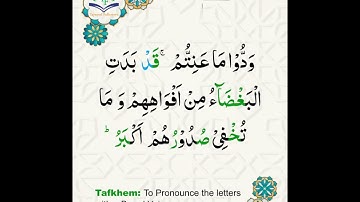 وَدُّوۡا مَا عَنِتُّمۡ ۚ قَدۡ بَدَتِ
الۡبَغۡضَآءُ مِنۡ اَفۡوَاهِهِمۡ وَ مَا
تُخۡفِىۡ صُدُوۡرُهُمۡ اَكۡبَرُ ؕ
Tafkhem: To Pronounce the letters